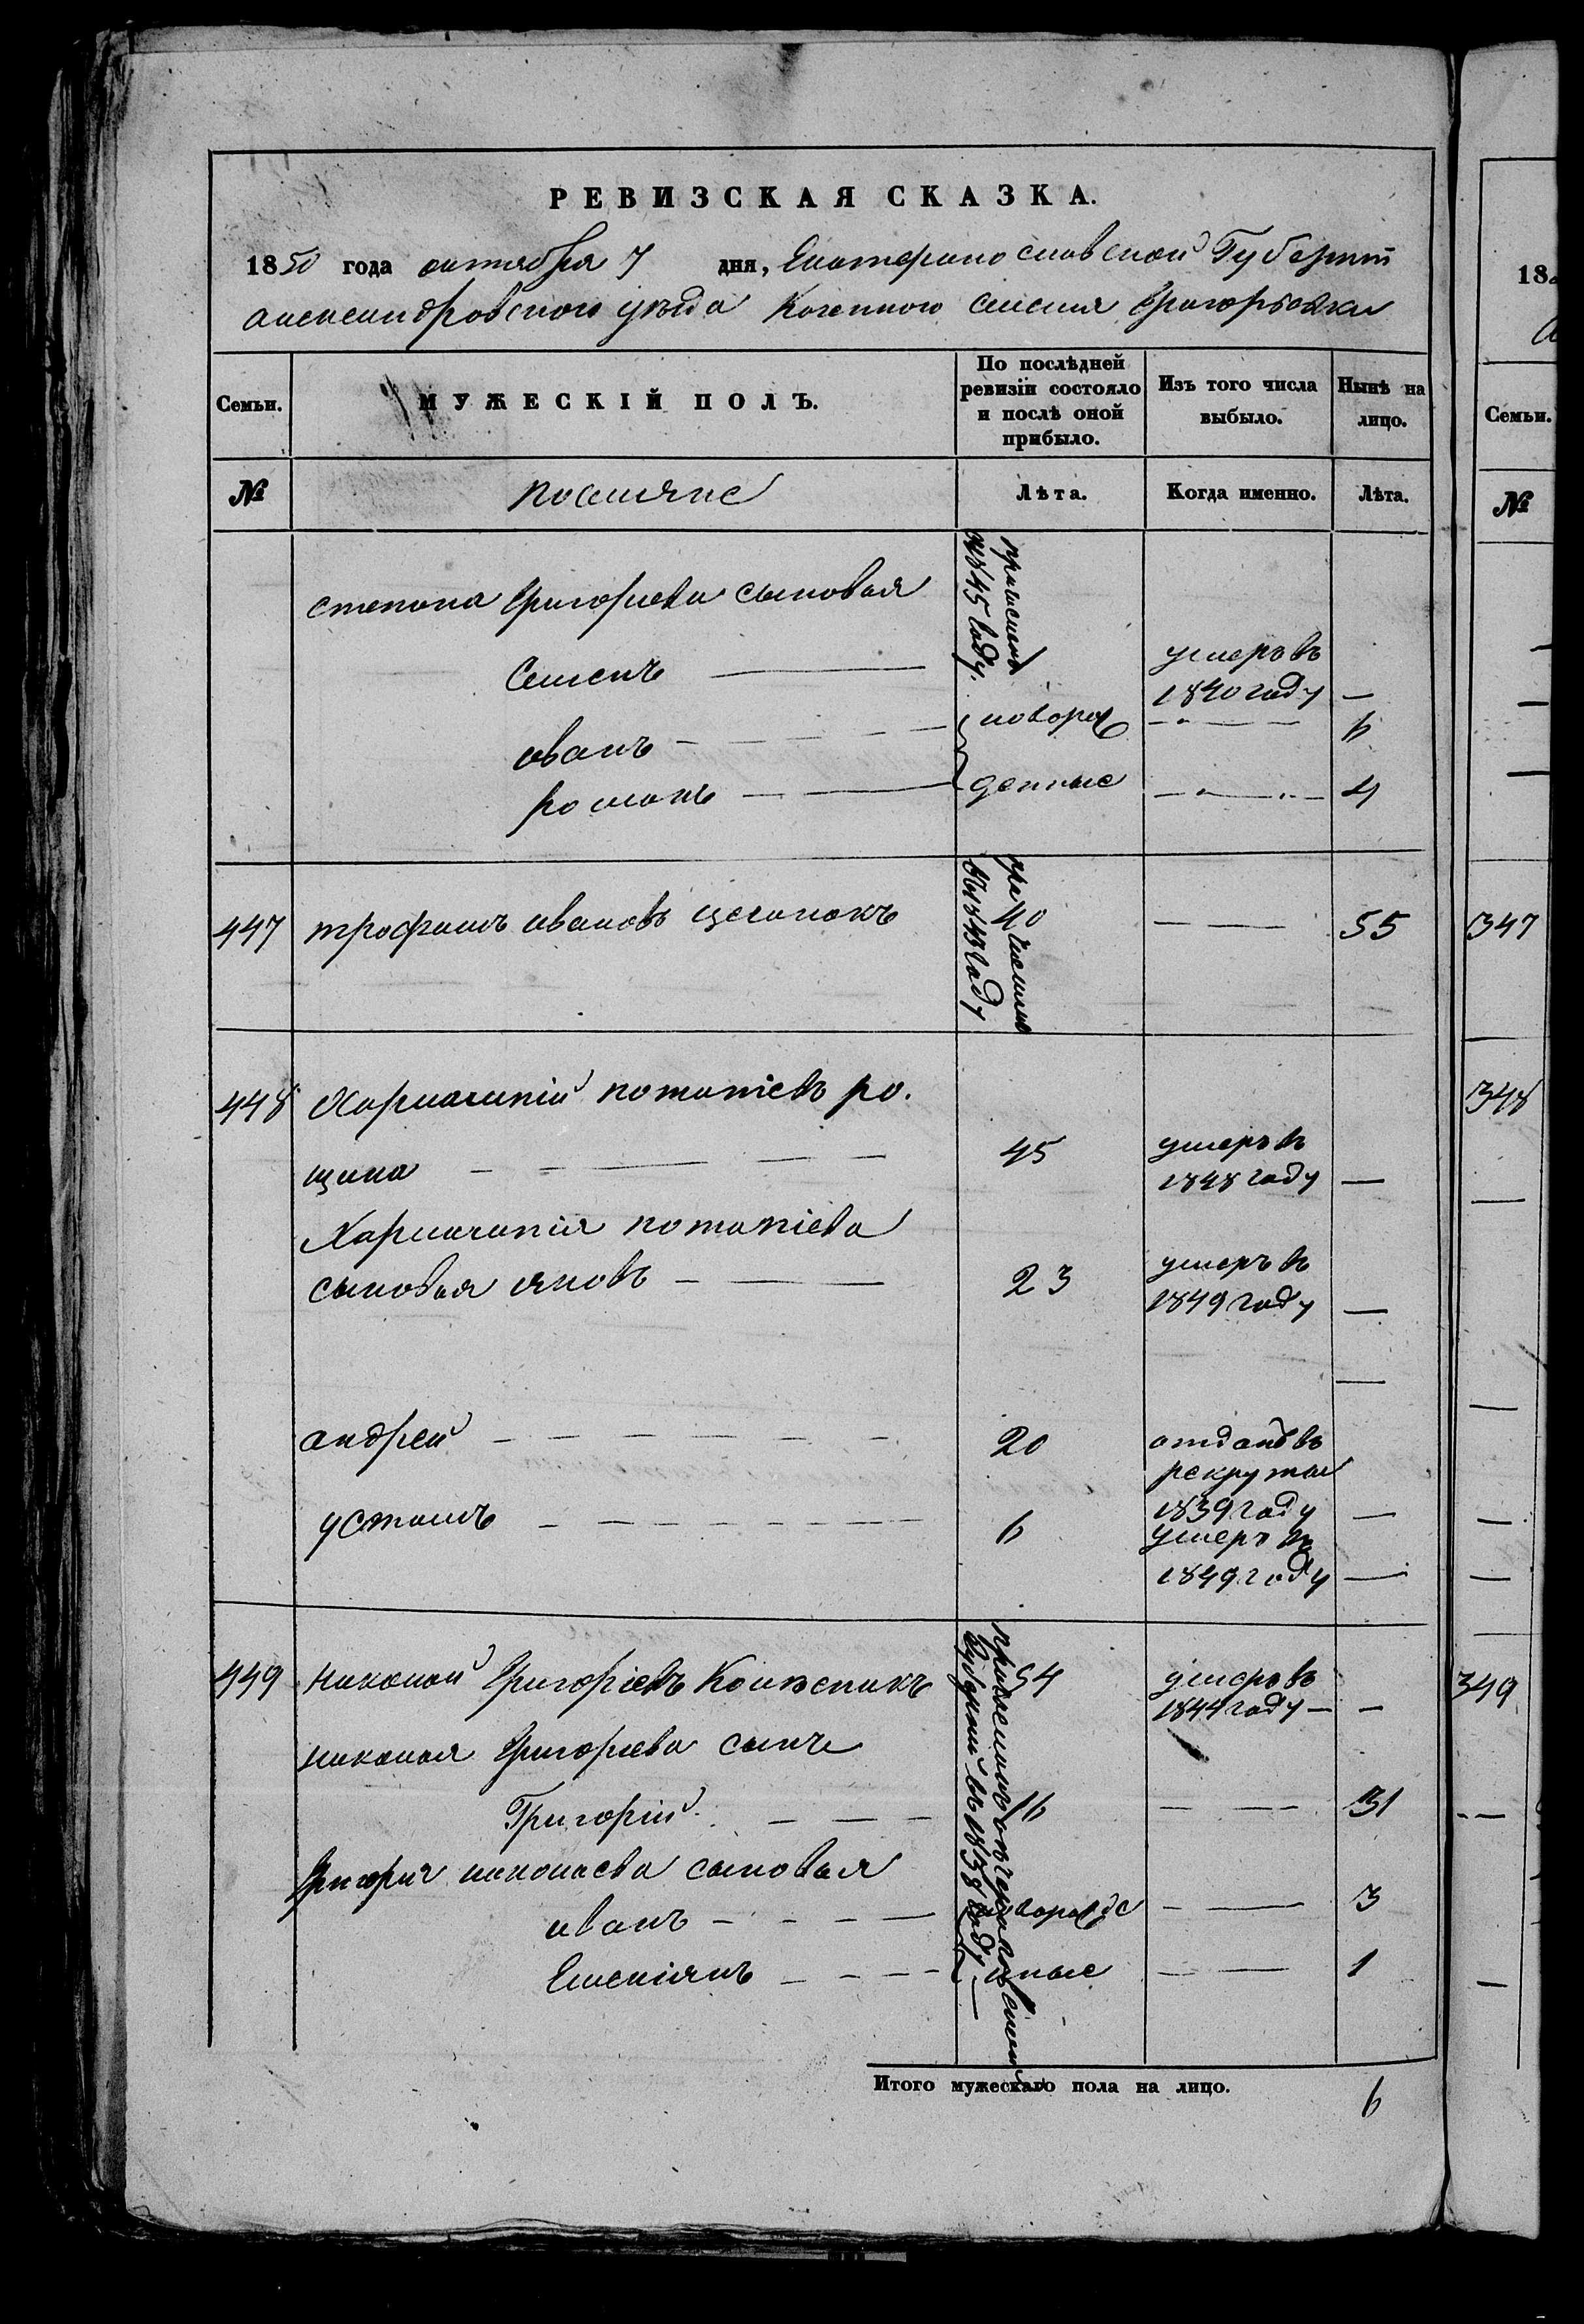 РЕВИЗСКАЯ СКАЗКА.
1850 года октября 7 дня, Екатеринославской Губерніи
александровского уезда Казенного селения Григорьевки
Семьи.
МУЖЕСКІЙ ПОЛЪ.
По послѣдней ревизіи состояло и послѣ оной прибыло.
Изъ того числа выбыло.
Нынѣ на лицо.
№
поселяне
Лѣта.
Когда именно.
Лѣта.
степана Григорьева сыновья
въ 1845 году
Семенъ
умеръ въ
1840 году —
иванъ
новорож
6
романъ
денные
4
447 трофимъ ивановъ цеганокъ 40 55
причислен
въ 1843 году
448 Харлампій потапіевъ ро.
щина 45 умеръ въ
1848 году —
Харлампія потапіева
сыновья яковъ 23 умеръ въ
1849 году —
андрей 20 отданъ въ
рекруты
1839 году —
устимъ 6 умеръ въ
1849 году —
449 николай Григоріевъ 54 умеръ въ
1844 году —
николая Григориева сынъ
Григорій 16 31
Григория николаева сыновья
иванъ 3
Емеліянъ 1
Губерніи въ 1838 году
Итого мужескаго пола на лицо. 6
18
Семьи.
№
347
348
349